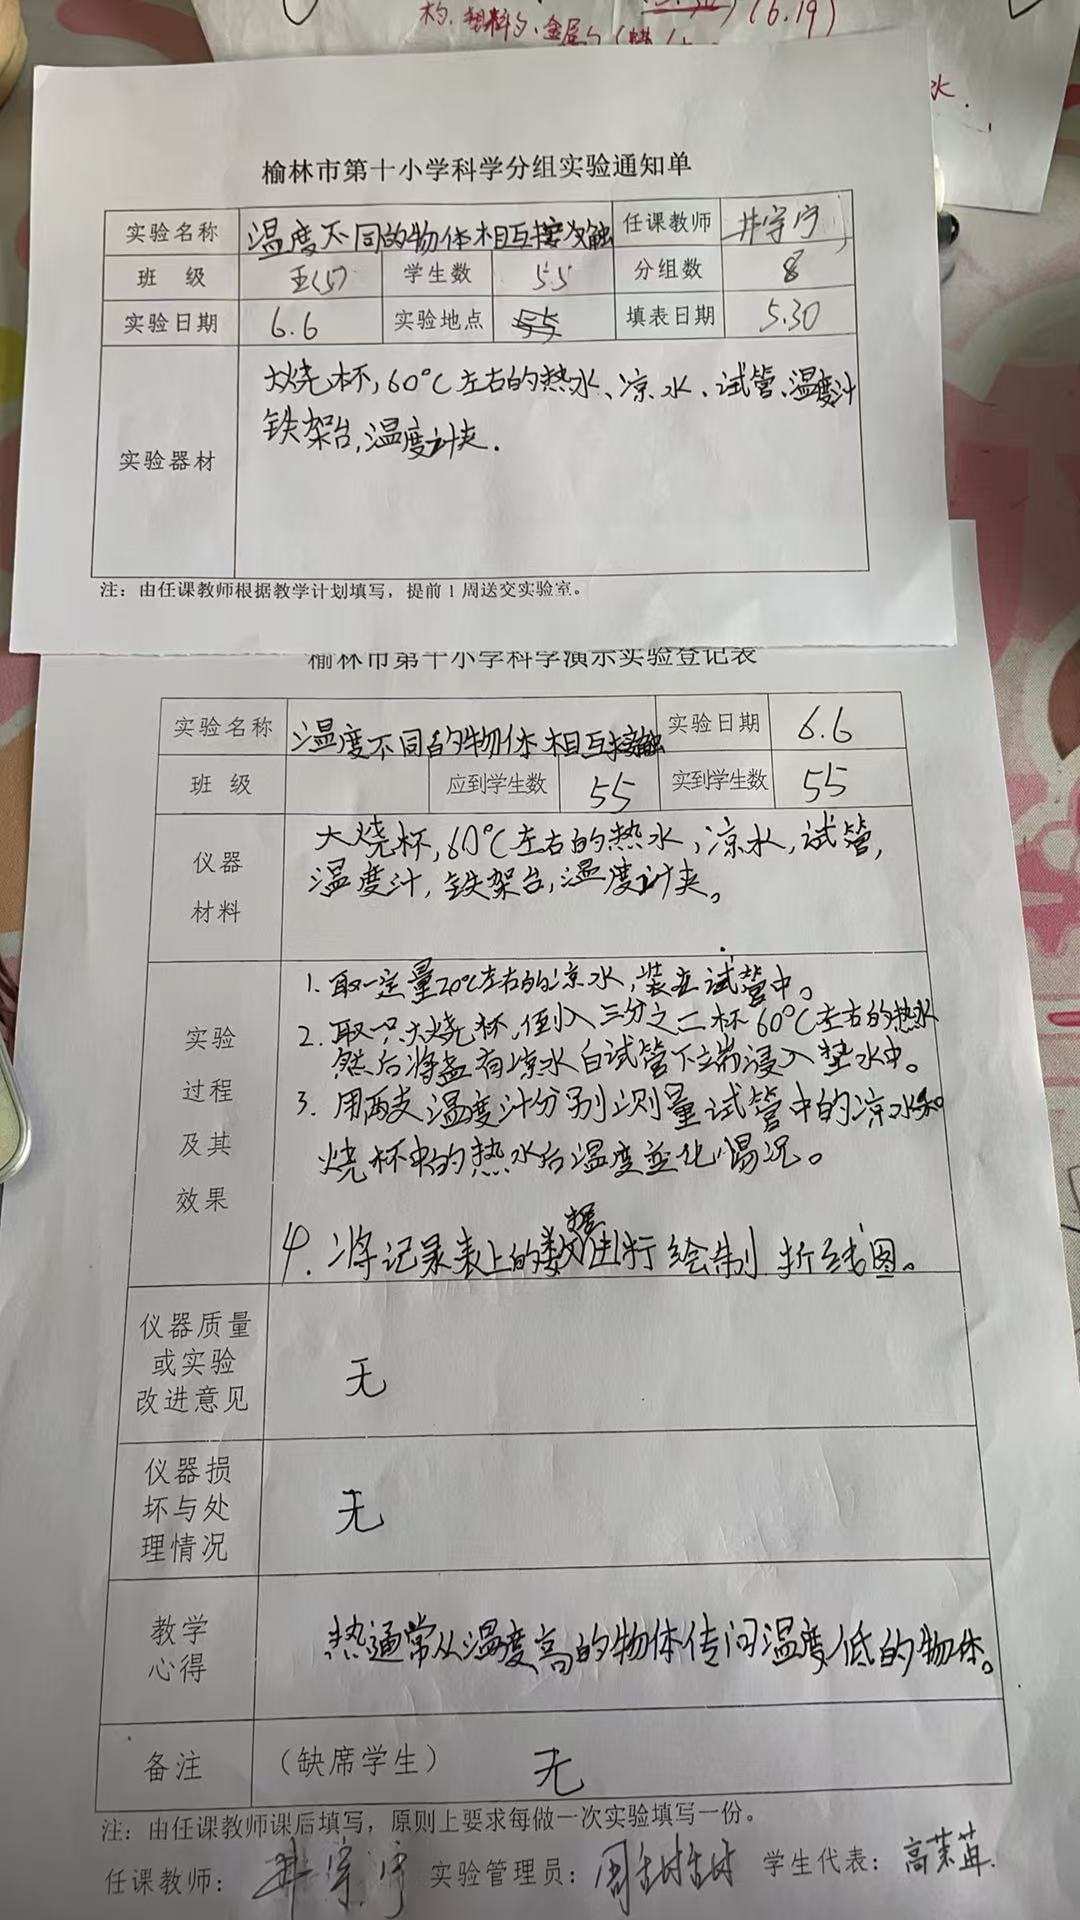 杓、塑料勺、金属勺
(6.19)
水.
榆林市第十小学科学分组实验通知单
实验名称 温度不同的物体相互接触 任课教师 井宇宁
班 级 五(5) 学生数 55 分组数 8
实验日期 6.6 实验地点 填表日期 5.30
实验器材
大烧杯,60°C左右的热水、凉水、试管、温度计
铁架台,温度计夹.
注：由任课教师根据教学计划填写，提前1周送交实验室。
榆林市第十小学科学演示实验登记表
实验名称 温度不同的物体相互接触 实验日期 6.6
班 级 应到学生数 55 实到学生数 55
仪器
材料
大烧杯,60°C左右的热水,凉水,试管,
温度计,铁架台,温度计夹。
实验
过程
及其
效果
1. 取一定量20°C左右的凉水,装在试管中。
2. 取一只大烧杯,倒入三分之二杯60°C左右的热水
然后将盛有凉水白试管下端浸入热水中。
3. 用两支温度计分别测量试管中的凉水和
烧杯中的热水后温度变化情况。
4. 将记录表上的数据进行绘制折线图。
仪器质量
或实验
改进意见
无
仪器损
坏与处
理情况
无
教学
心得
热通常从温度高的物体传向温度低的物体。
备注 （缺席学生） 无
注：由任课教师课后填写，原则上要求每做一次实验填写一份。
任课教师： 井宇宁 实验管理员： 学生代表：